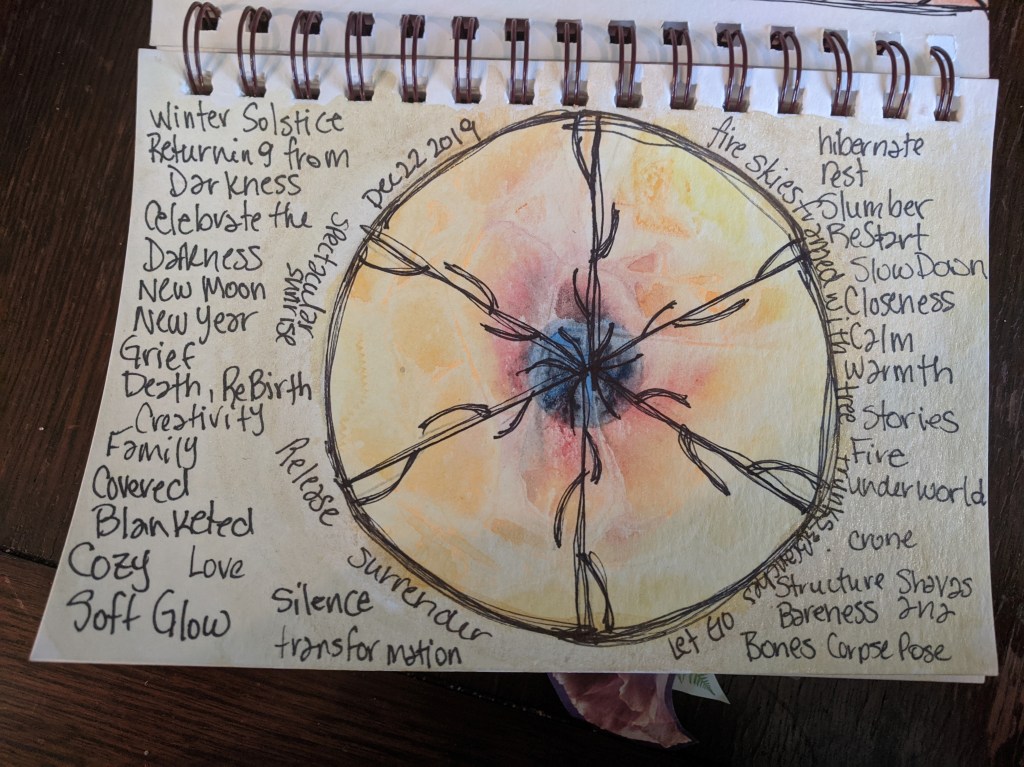 Winter Solstice
Returning from
Darkness
Celebrate the
Darkness
New Moon
New Year
Grief
Death, ReBirth
Creativity
Family
Covered
Blanketed
Cozy Love
Soft Glow
Silence
transformation
Dec 22 2019
Spectacular
sunrise
Release
Surrendur
Let Go
fire skies framed with tree trunks & branches
hibernate
rest
Slumber
ReStart
Slow Down
Closeness
Calm
warmth
Stories
Fire
underworld
crone
Structure Shavas
Bareness ana
Bones Corpse Pose